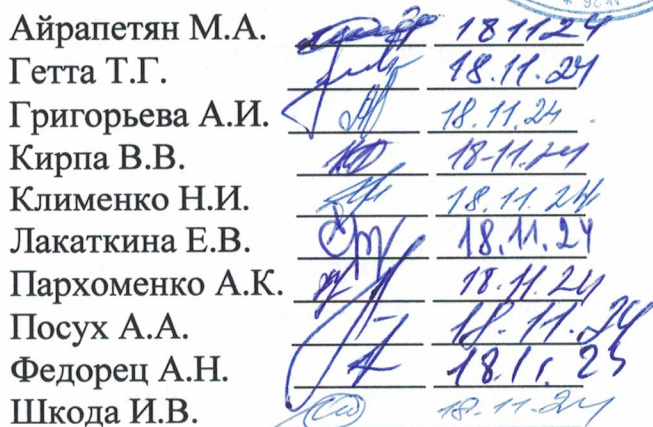 Айрапетян М.А. 181124
Гетта Т.Г. 18.11.24
Григорьева А.И. 18.11.24
Кирпа В.В. 18-11.24
Клименко Н.И. 18.11.24
Лакаткина Е.В. 18.11.24
Пархоменко А.К. 18.11.24
Посух А.А. 18.11.24
Федорец А.Н. 18.11.25
Шкода И.В. 18.11.24